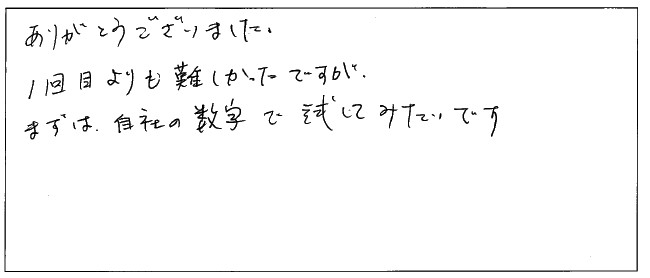 ありがとうございました。
1回目よりも難しかったですが、
まずは、自社の数字で試してみたいです